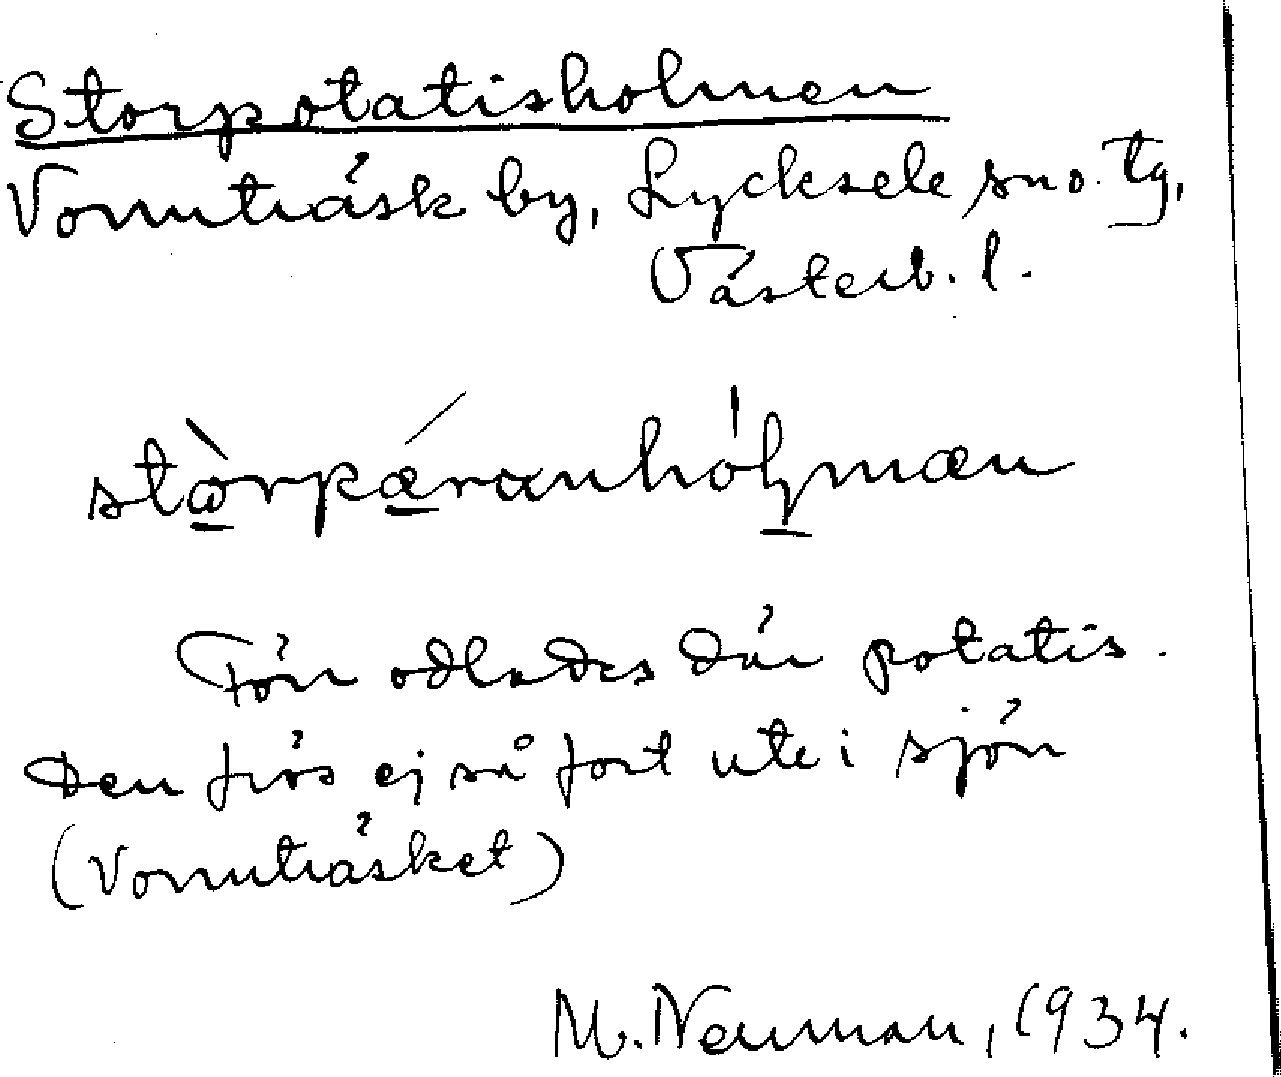 Storpotatisholmen
Vormträsk by, Lycksele sno. tg,
Västerb. l.
stòrpǽranhólmæn
Förr odlades där potatis.
Den frös ej så fort ute i sjön
(Vormträsket)
M. Neuman, 1934.